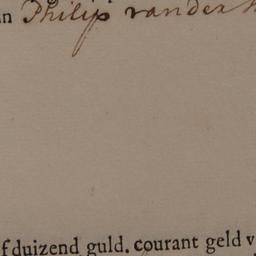 n Philip vander
f duizend guld. courant geld v